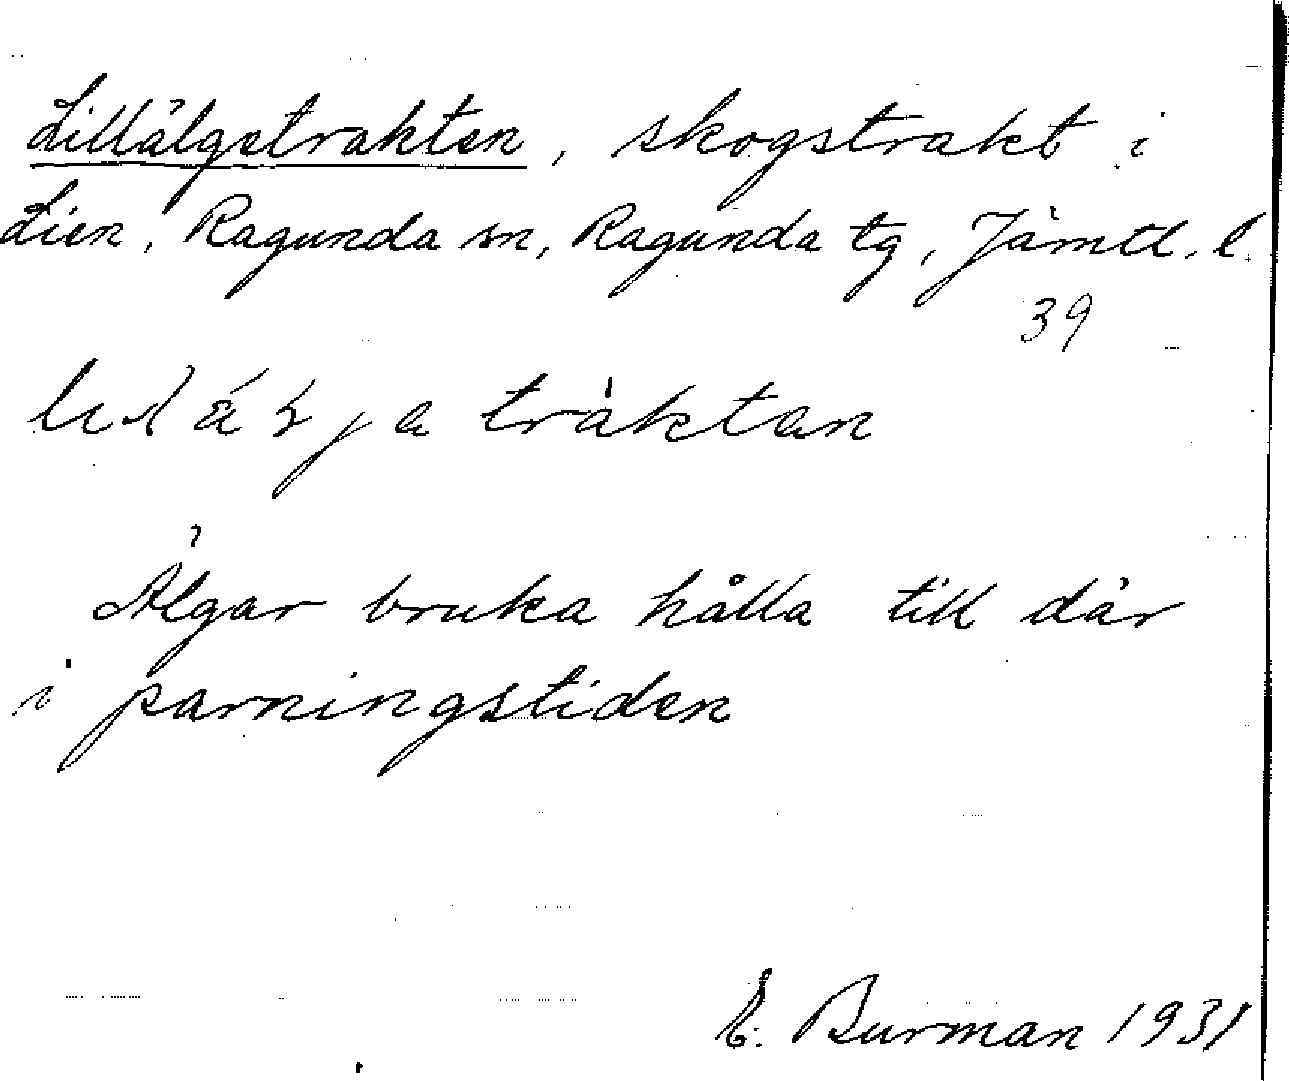 Lillälgetrakten, skogstrakt i
Lien, Ragunda sn, Ragunda tg, Jämtl. l.
39
träktan
Älgar bruka hålla till där
i parningstiden
E. Burman 1931